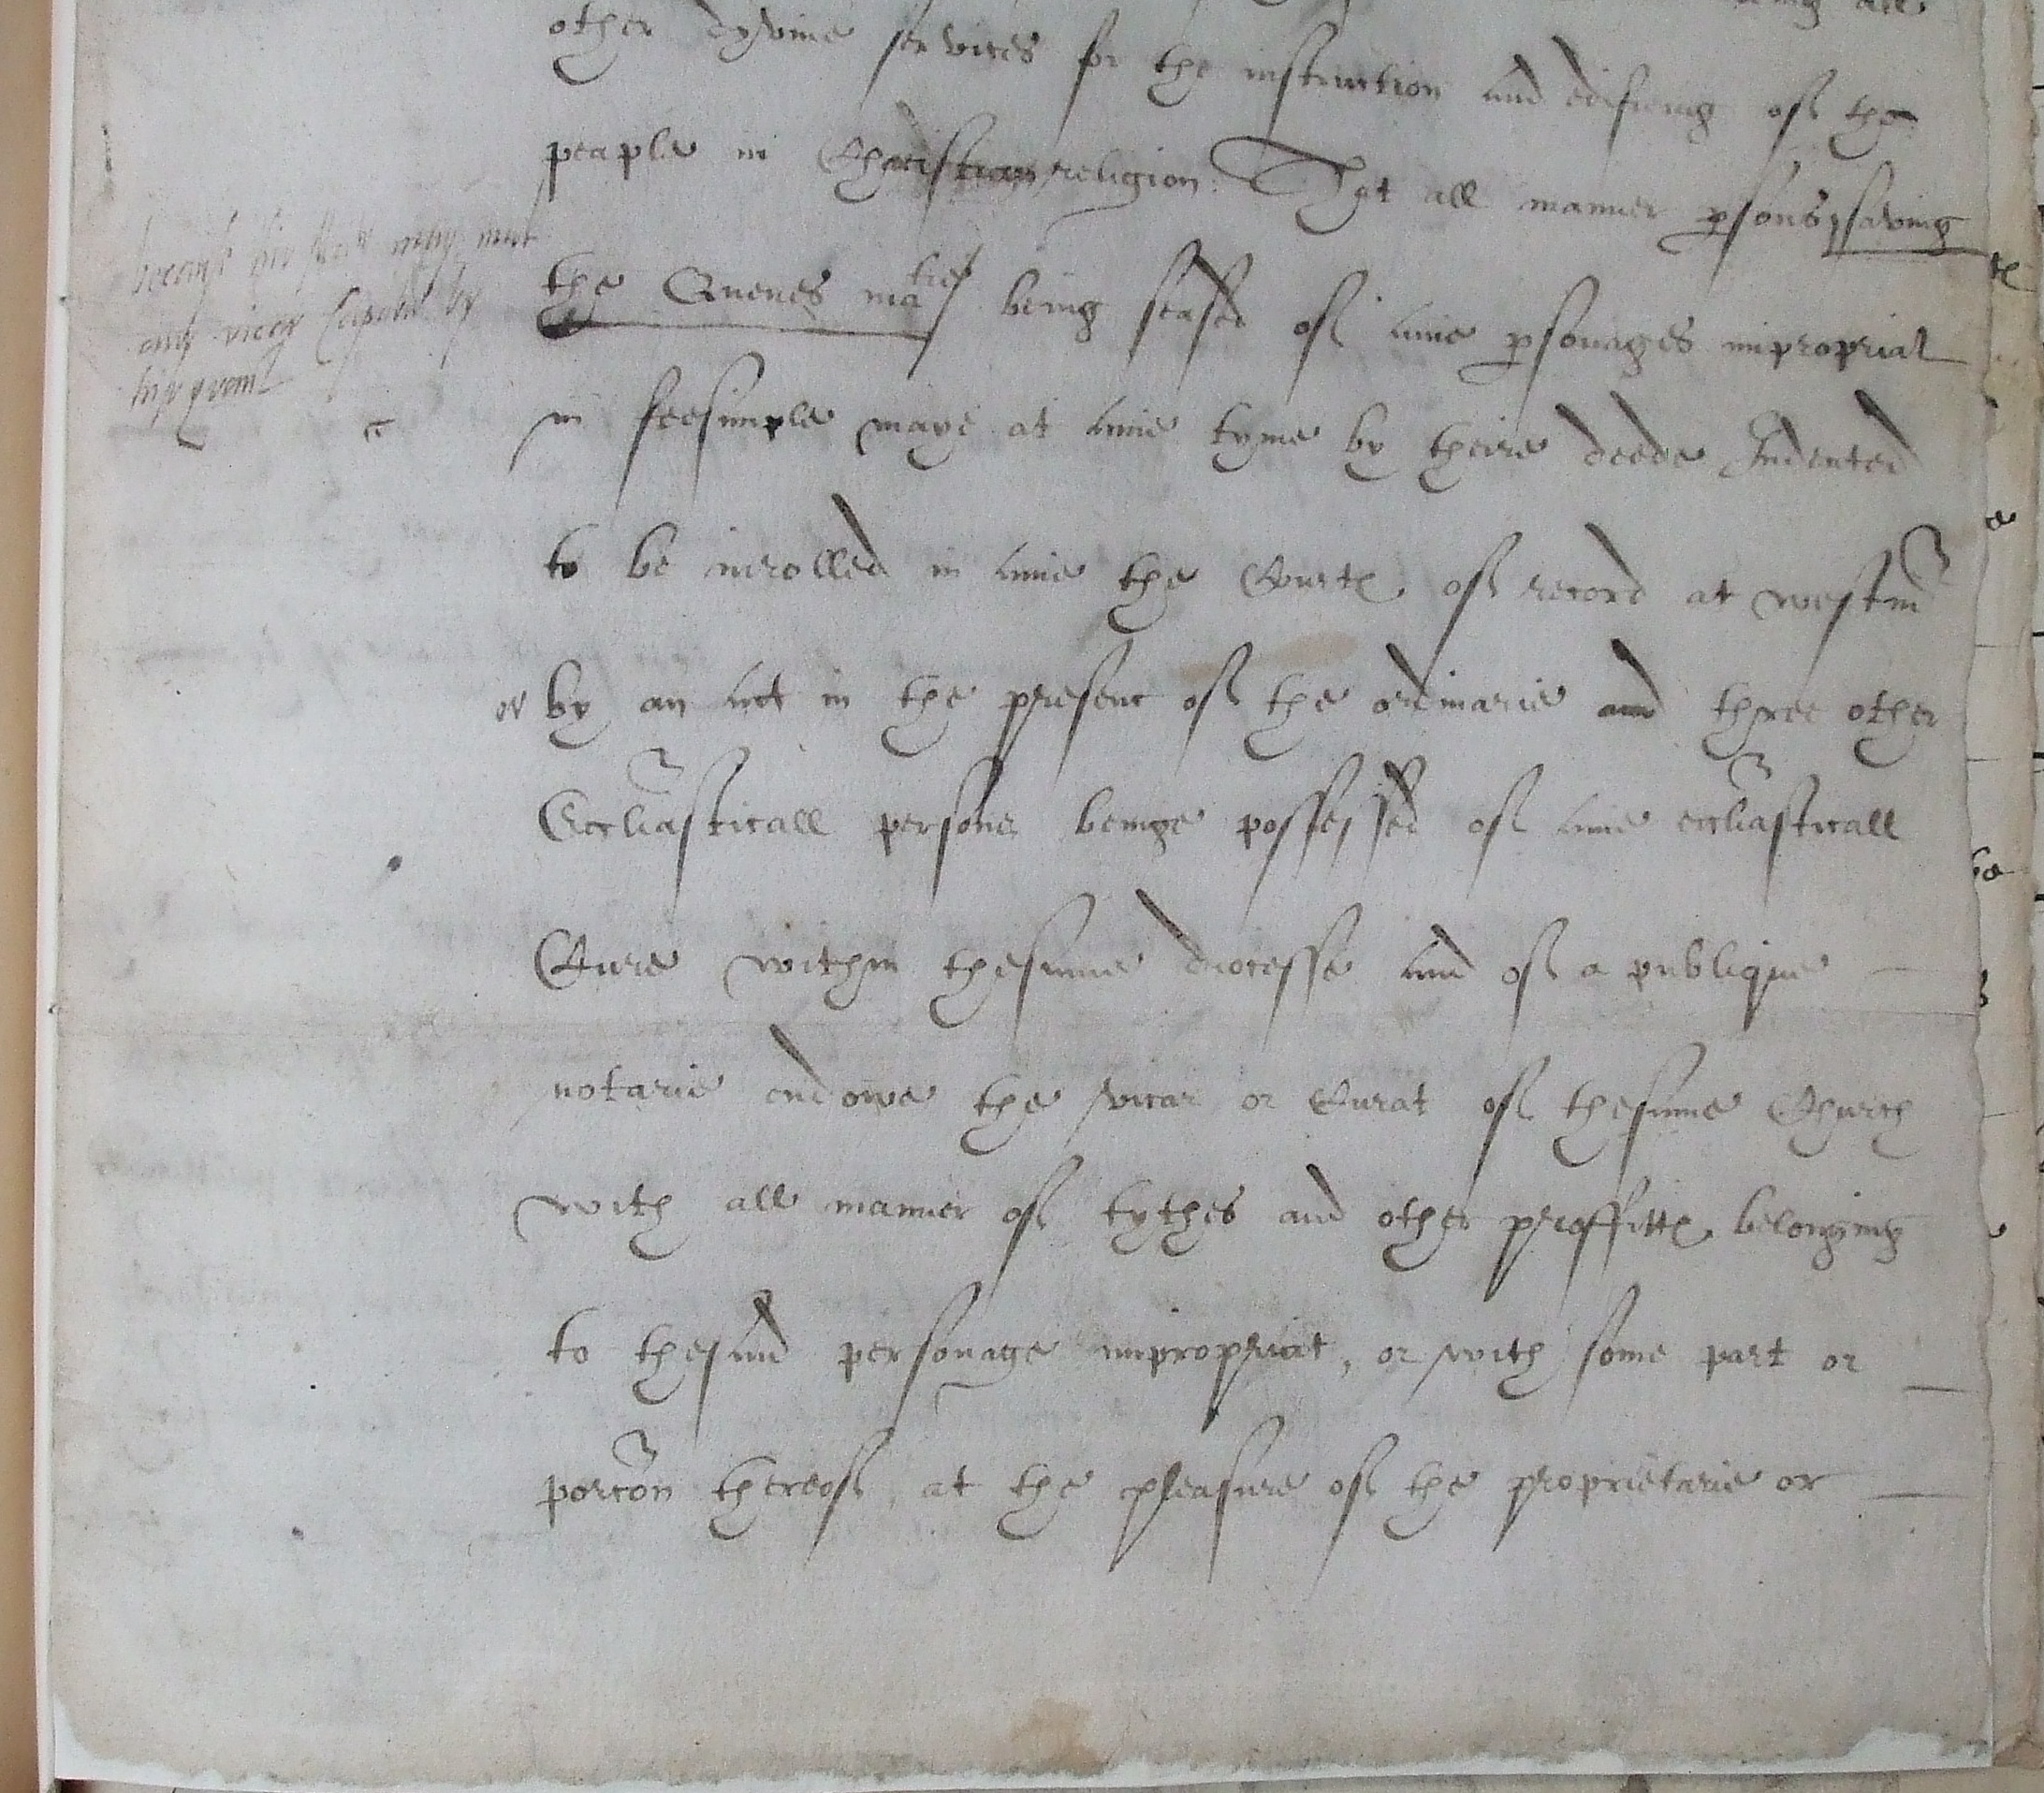 other dyvine services for the instruction and edifieng of the
peaple in Christian religion. That all manner psons, saving
the Quenes matie being seased of anie psonages impropriat
in feesimple maye at anie tyme by theire deede Indented
to be inrolled in anie the Courtes of record at westm
or by an act in the presenc of the ordinarie and three other
Eccliasticall persons beinge possessed of anie eccliasticall
Cure within thesame diocesse and of a publique
notarie endowe the vicar or Curat of thesame Church
with all manner of tythes and other proffittes belonging
to thesaid personage impropriat, or with some part or
porcon thereof, at the pleasure of the proprietarie or
because hir
any vicar by
hir graunt